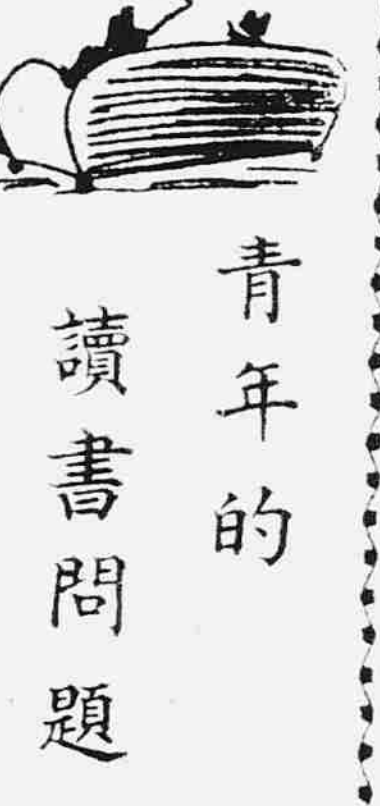 青年的
讀書問題